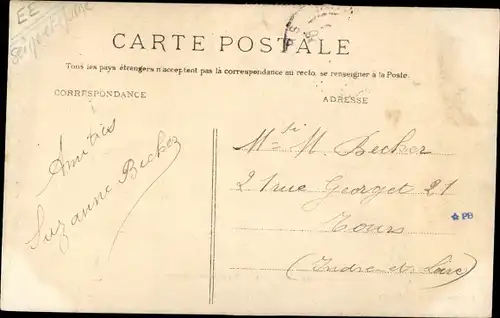 EE
CARTE POSTALE
Tous les pays étrangers n'acceptent pas la correspondance au recto, se renseigner à la Poste.
CORRESPONDANCE
ADRESSE
Amitiés
Suzanne Becker
M. Becker
21 rue Georget 21
Tours
(Indre et Loire)
PB